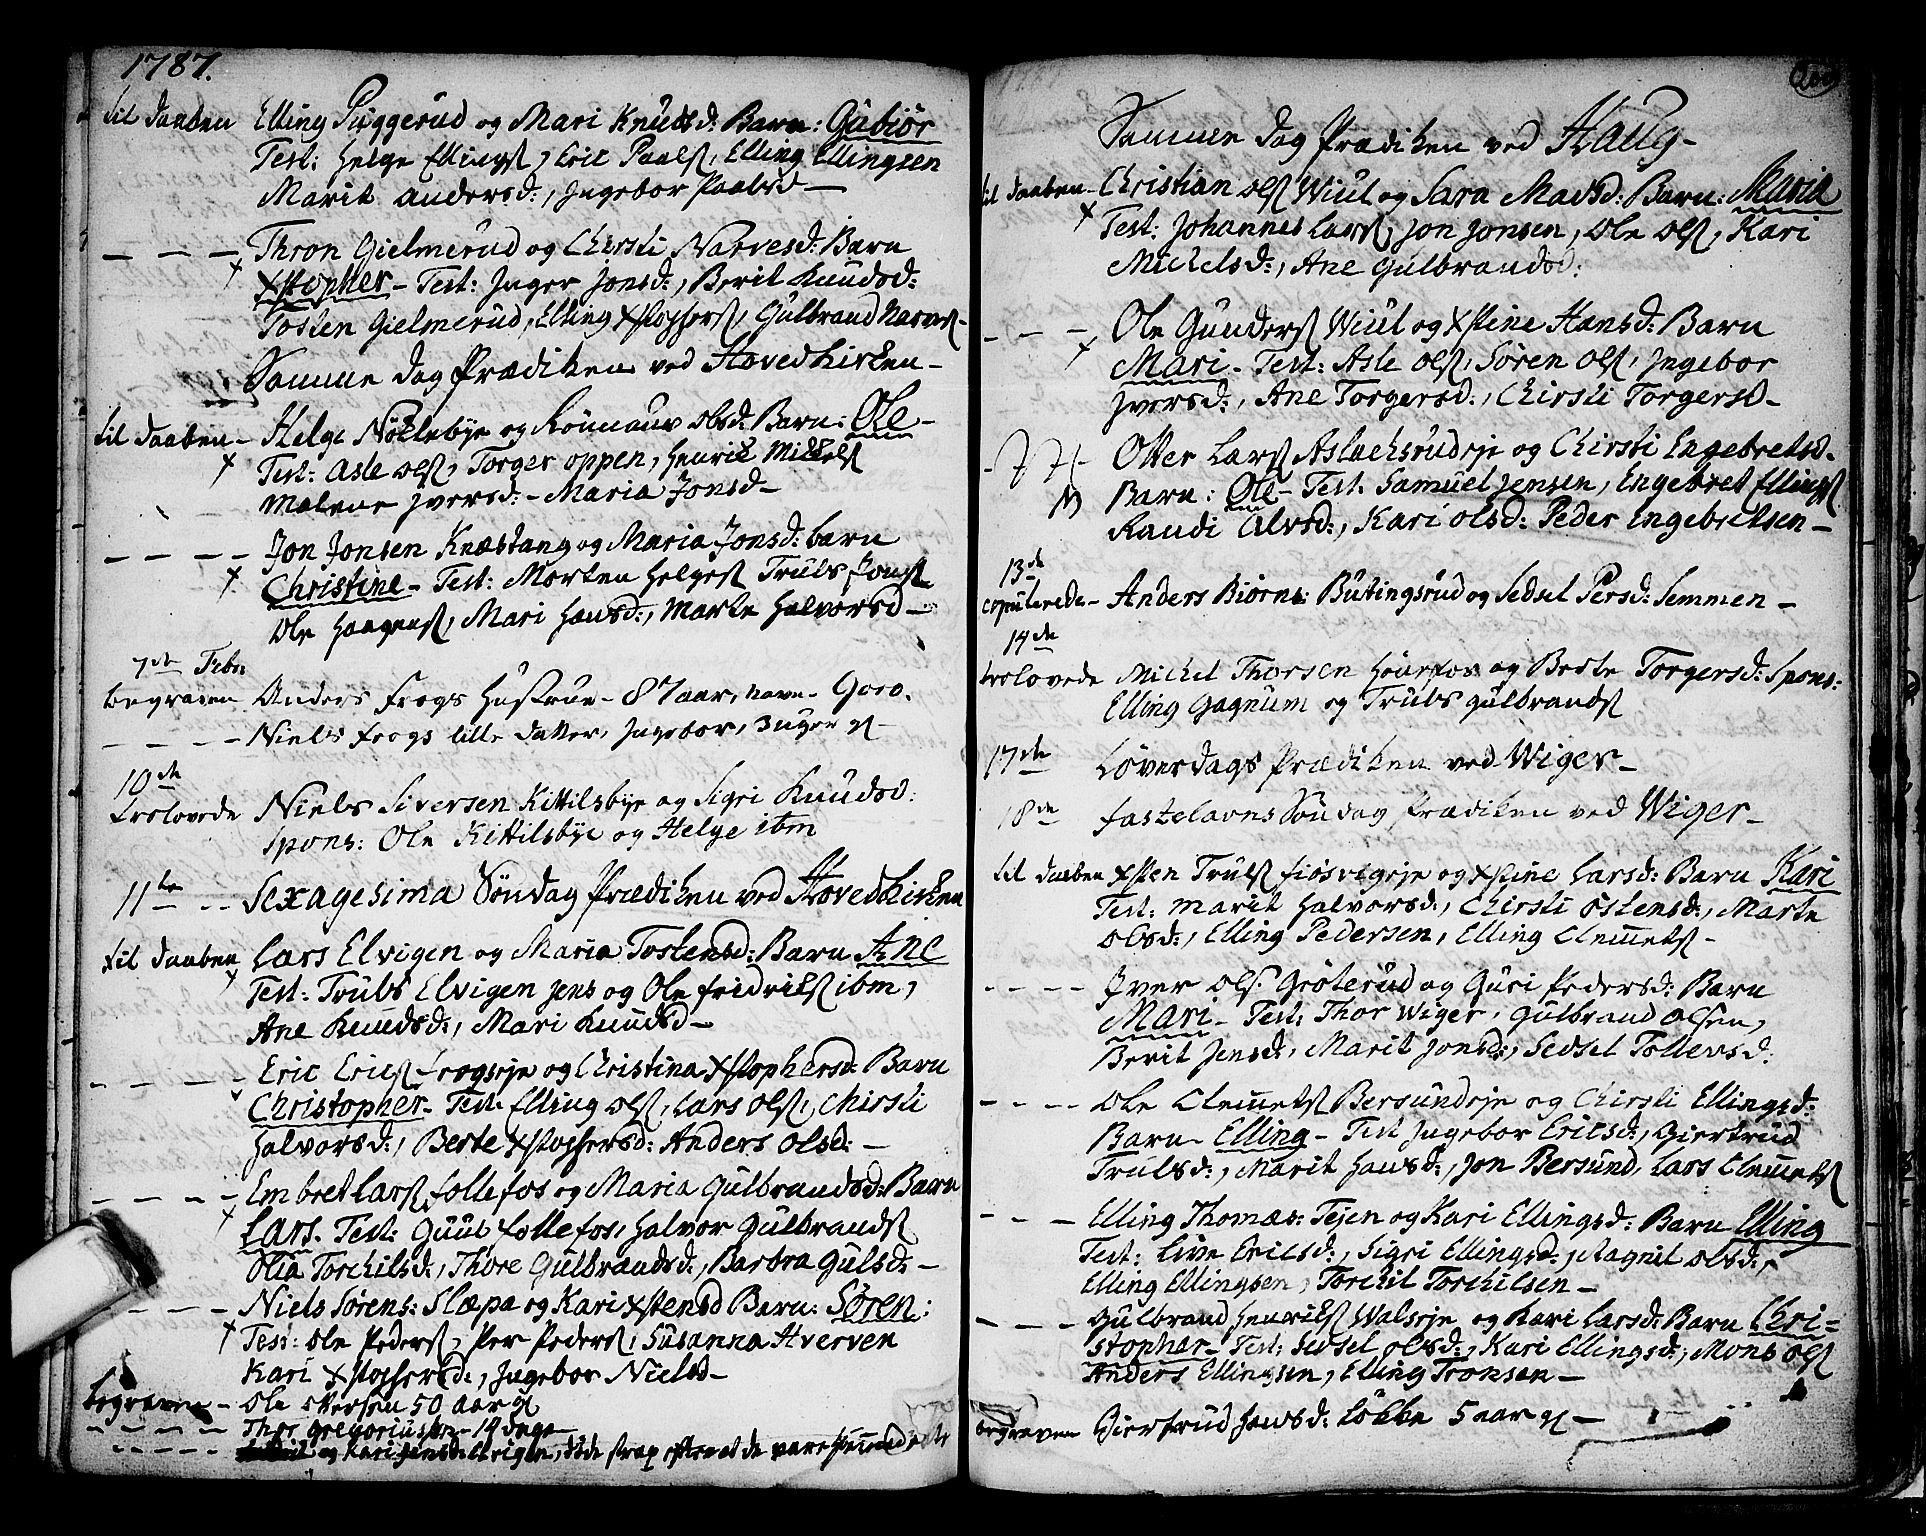 1787.
til Daaben Elling Puggerud og Mari Knudsd: Barn: Gubiør
Test: Helge Ellings, Eric Paals, Elling Ellingsen
Marit Andersd:, Ingebor Paalsd –
– – – Thron Gielmerud og Chirsti Narvesd: Barn
Xstopher – Test: Inger Jonsd:, Berit Knudsd:
Tosten Gielmerud, Elling Xstophers, Gulbrand Narves –
Samme Dag Prædiken ved Hovedkirken –
til Daaben – Helge Nøklebye og Rønnauv Olsd: Barn: Ole –
Test: Asle Ols, Torger Oppen, Henrik Mikels
Malene Iversd: – Maria Jonsd –
– – – – Jon Jonsen Knæstang og Maria Jonsd: barn
Christine – Test: Morten Helges Truls Jons
Ole Haagens, Mari Hansd:, Marte Halvorsd –
7de Febr:
begraven Anders Frogs Hustrue – 87 aar, navn – Goro.
– – – – Niels Frogs lille datter, Ingebor, 3 uger gl
10de
trolovede Niels Siversen Kittilsbye og Sigri Knudsd:
Spons: Ole Kittilsbye og Helge ibm
11te – – Sexagesima Søndag Prædiken ved Hovedkirken
til Daaben Lars Elvigen og Maria Tostensd: Barn Ane
Test: Truls Elvigen Jens og Ole Fridriks ibm,
Ane Knudsd:, Mari Knudsd –
– – – – Eric Erics Frogseje og Christina Xstophersd: Barn
Christopher – Test: Elling Ols, Lars Ols, Chirsti
Halvorsd:, Berte Xstophersd: Anders Olsd: –
– – – – Embret Lars Follefos og Maria Gulbrandsd: Barn
Lars. Test: Guul Follefos, Halvor Gulbrands
Olia Torchilsd:, Thore Gulbrandsd:, Barbra Gulsd: –
– – – Niels Sørens: Slæpa og Kari Xstensd Barn: Søren:
Test: Ole Peders, Per Peders, Susanna Hverven
Kari Xstophersd:, Ingebor Nielsd –
begraven – Ole Iversen 50 aar gl
– – – – Thor Gregoriussen – 14 dage –
– – – – og Kari Jensd: Elvigen, døde strax efter at de vare hiemmedøbte
Samme Dag Prædiken ved Haug –
til Daaben – Christian Ols Wiul og Sara Madsd: Barn: Maria
Test: Johannes Lars, Jon Jonsen, Ole Ols, Kari
Michelsd:, Ane Gulbrandsd:
– – – Ole Gunders Wiul og Xstine Hansd: Barn
Mari – Test: Asle Ols, Søren Ols, Ingebor
Iversd:, Ane Torgersd:, Chirsti Torgersd –
Otter Lars Aslachsrudeje og Chirsti Engebretsd.
Barn: Ole – Test: Samuel Jensen, Engebret Ellings
Randi Alvsd:, Kari Olsd: Peder Engebretsen –
13de
copulerede – Anders Biørns: Butingsrud og Sedsel Persd: Semmen –
14de
trolovede Michel Thorsen Hourfos og Berte Torgersd: Spons:
Elling Gagnum og Truls Gulbrands
17de Løverdags Prædiken ved Wiger –
18de Fastelavns Søndag Prædiken ved Wiger –
til daaben Xsten Truls Fiøsvigeje og Xstine Larsd: Barn Kari
Test: Marit Halvorsd:, Chirsti Ostensd:, Marte
Olsd:, Elling Pedersen, Elling Clemets –
– – – – Iver Ols: Grøterud og Guri Pedersd: Barn
Mari – Test: Thor Wiger, Gulbrand Olsen,
Berit Jensd:, Marit Jonsd:, Sedsel Tollevsd:
– – – – Ole Clemets Bersundeje og Chirsti Ellingsd:
Barn – Elling – Test Ingebor Ericsd:, Giertrud
Trulsd:, Marit Hansd:, Jon Bersund, Lars Clemets
– – – Elling Thomæs: Tejen og Kari Ellingsd: Barn Elling
Test: Live Ericsd:, Sigri Ellingsd:, Magnil Olsd:,
Elling Ellingsen, Torchil Torchilsen –
– – – Gulbrand Henriks Walseje og Kari Larsd: Barn Chri=
stopher – Test: Sedsel Olsd:, Kari Ellingsd:, Mons Ols
Anders Ellingsen, Elling Tronsen –
begraven Giertrud Hansd: Løkke 5 aar gl –